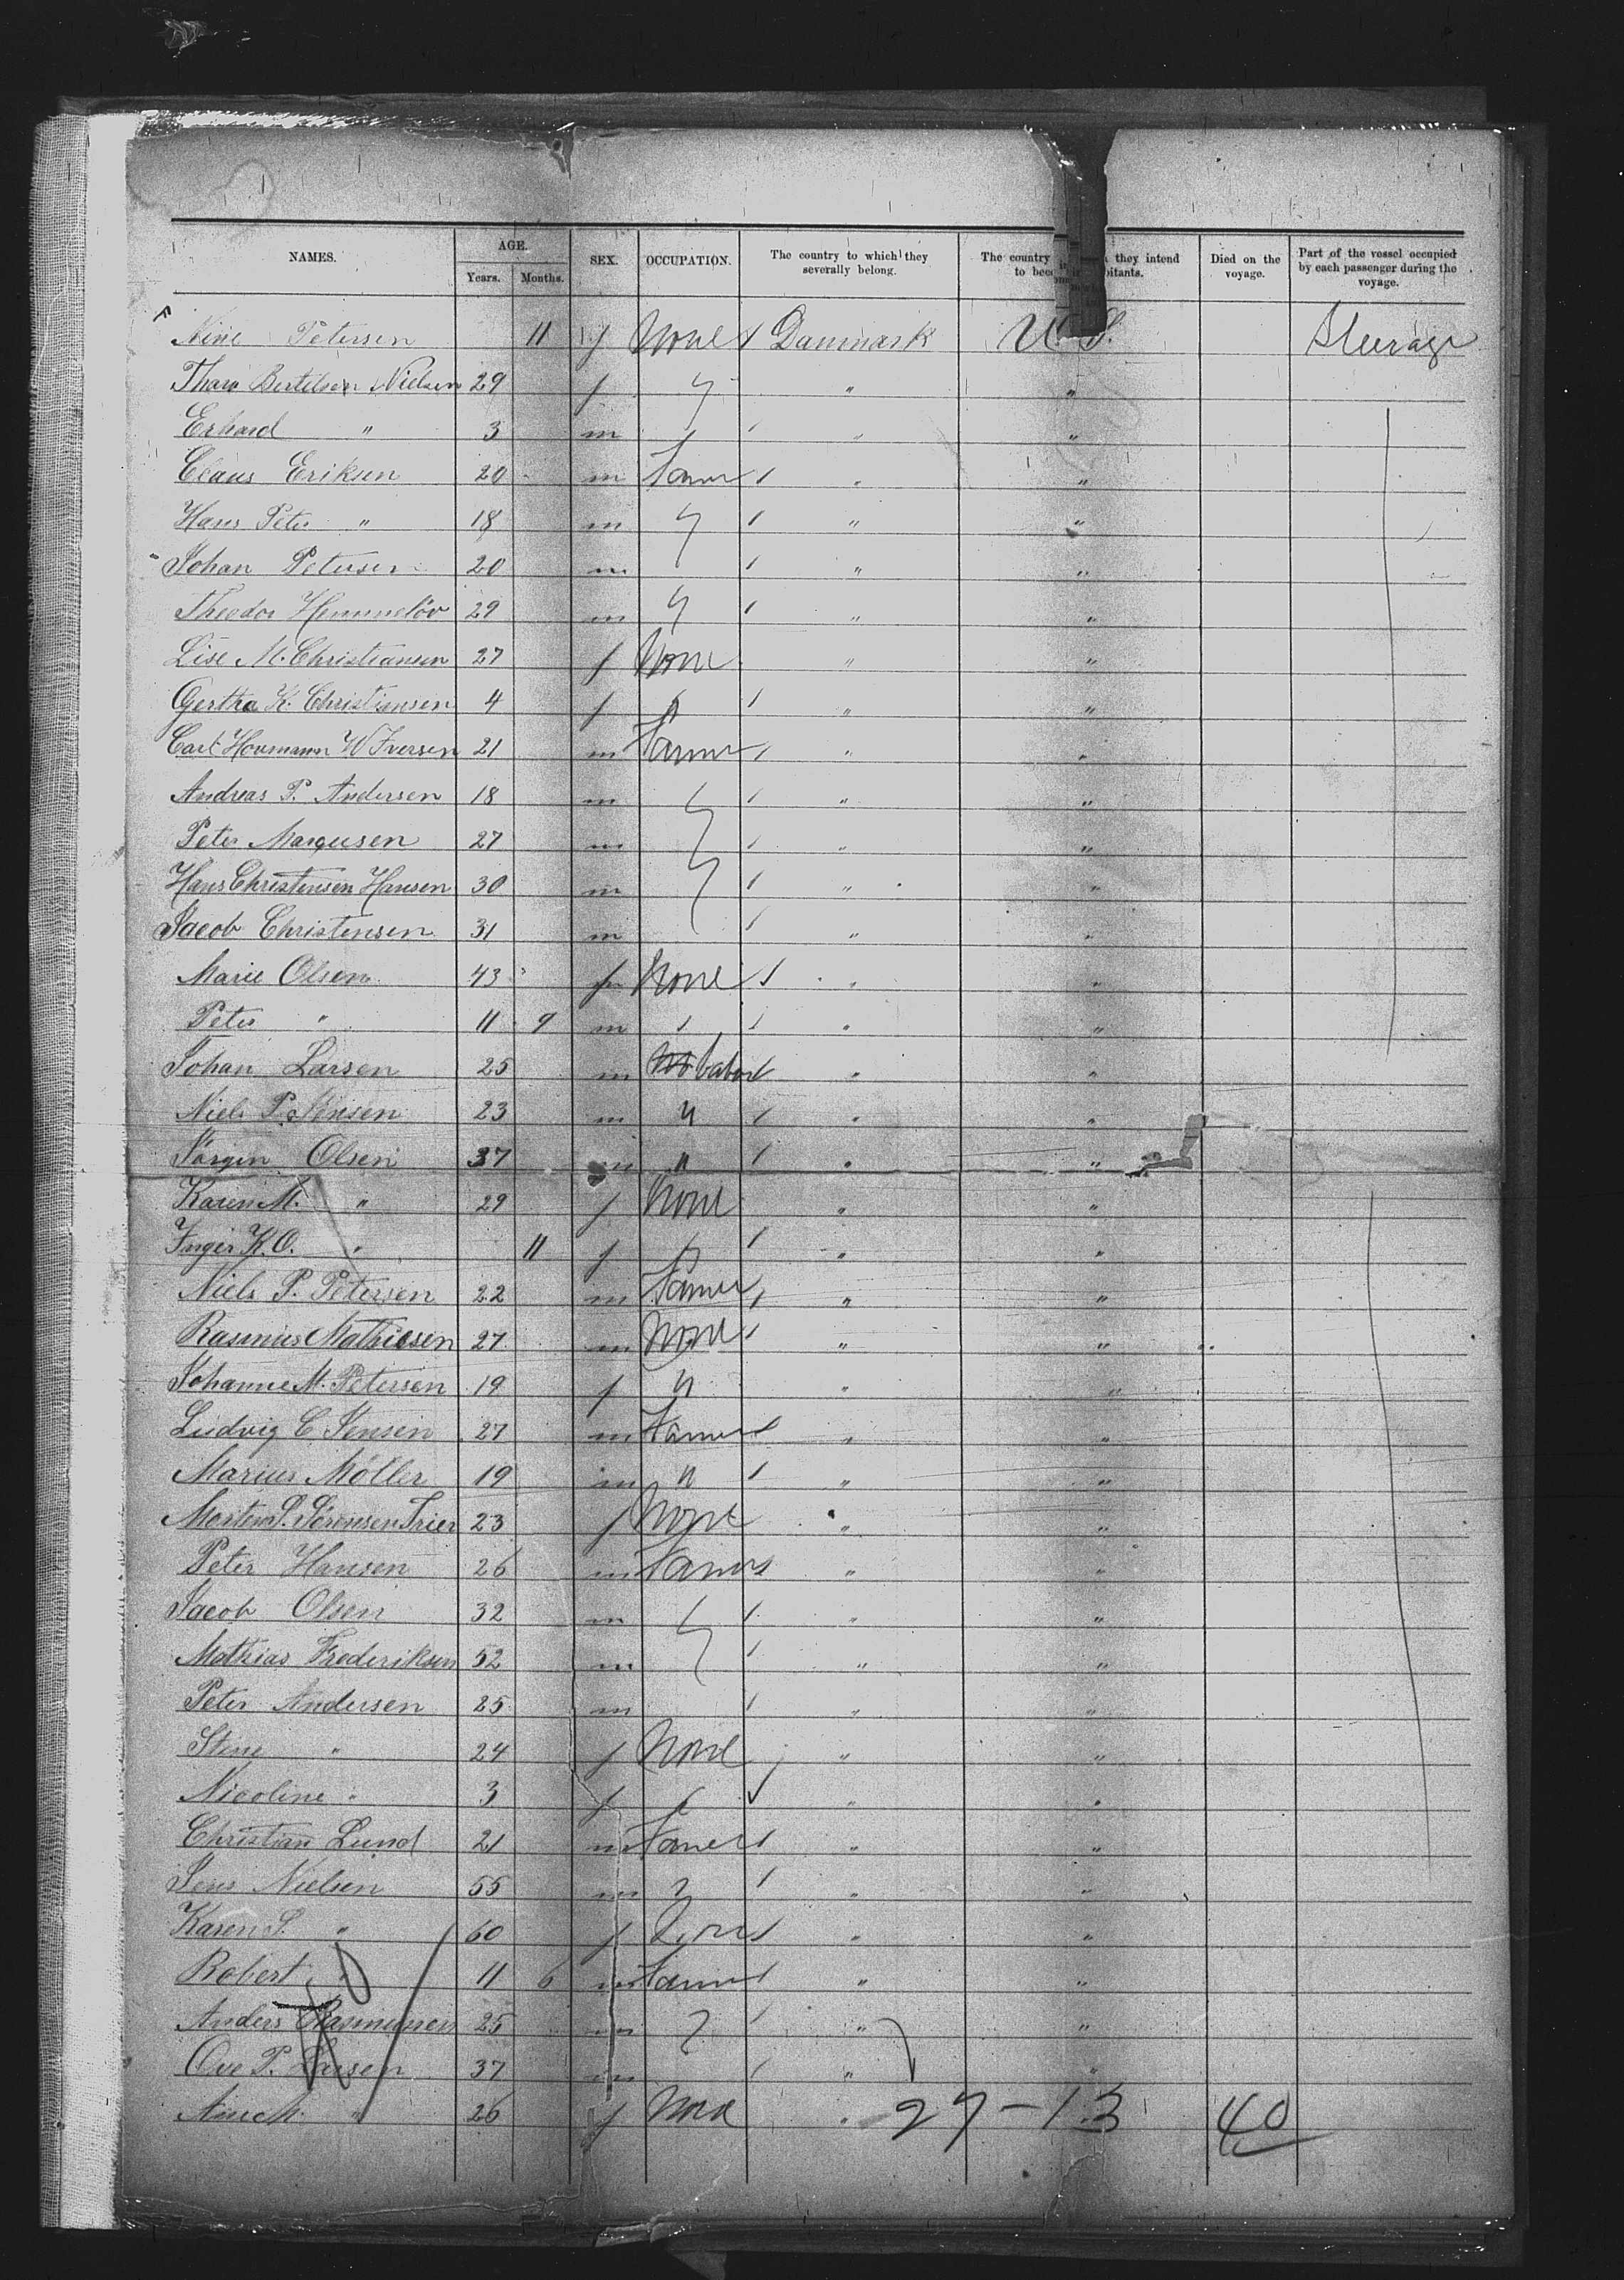 NAMES. AGE. Years. Months. SEX. OCCUPATION. The country to which they severally belong. The country they intend to bec itants. Died on the voyage. Part of the vessel occupied by each passenger during the voyage.
Nine Petersen 11 f None Danmark U S. Steerage
Thara Bertelsen Nielsen 29 f " "
Erhard " 3 m " "
Claus Eriksen 20 m Farmer " "
Hans Peter " 18 m " "
Johan Petersen 20 m " "
Theodor Hemmelöv 29 m " "
Lise M. Christiansen 27 f None " "
Gertha K. Christiansen 4 f " "
Carl Hovmann W Iversen 21 m Farmer " "
Andreas P. Andersen 18 m " "
Peter Marqusen 27 m " "
Hans Christensen Hansen 30 m " "
Jacob Christensen 31 m " "
Marie Olsen 43 f None " "
Peter " 11 9 m " "
Johan Larsen 25 m Labor " "
Niels P. Jensen 23 m " " "
Jörgen Olsen 37 m " " "
Karen M. " 29 f None " "
Inger K.O. " 11 f " "
Niels P. Petersen 22 m Farmer " "
Rasmus Mathiesen 27 m None " "
Johanne M. Petersen 19 f " " "
Ludvig C Jensen 27 m Farmer " "
Marius Möller 19 m " " "
Morten S. Sörensen Trier 23 f None " "
Peter Hansen 26 m Farmer " "
Jacob Olsen 32 m " "
Mathias Frederiksen 52 m " "
Peter Andersen 25 m " "
Stine " 24 f None " "
Nicoline " 3 f " "
Christian Lund 21 m Farmer " "
Jens Nielsen 55 m " "
Karen S. " 60 f None " "
Robert " 11 6 m Farmer " "
Anders Rasmussen 25 m " "
Ove P. Larsen 37 m " "
Ane M. " 26 f None " 27-13 40